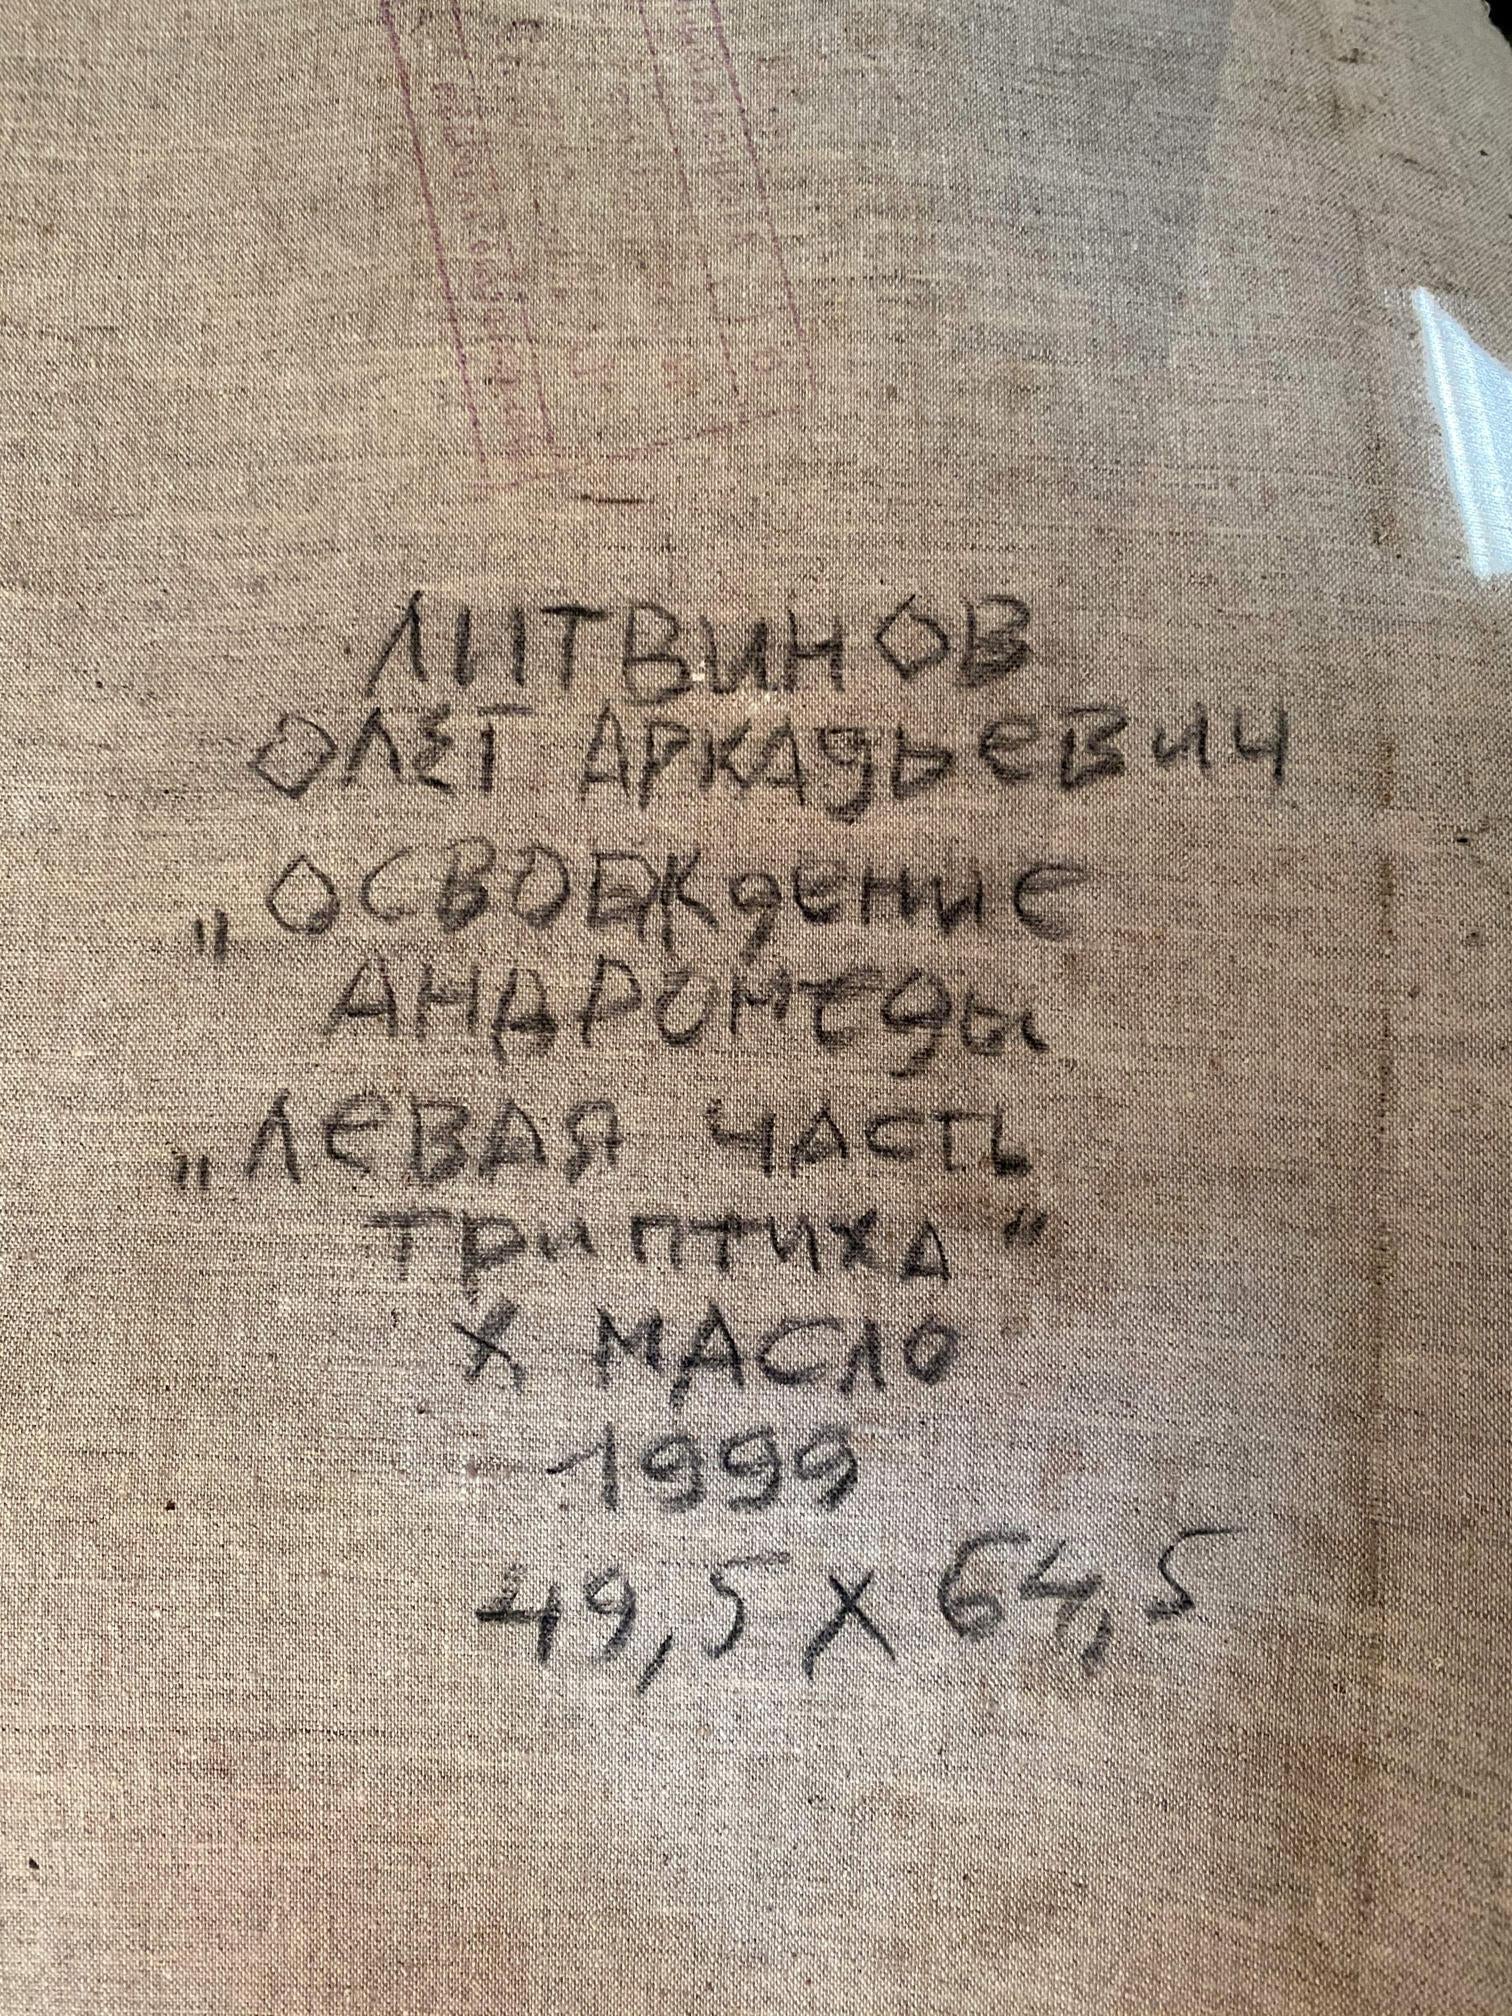 ЛИТВИНОВ
ОЛЕГ АРКАДЬЕВИЧ
„ОСВОБЖДЕНИЕ
АНДРОМЕДЫ
„ЛЕВАЯ ЧАСТЬ
ТРИПТИХА“
Х МАСЛО
1999
49,5 X 64,5